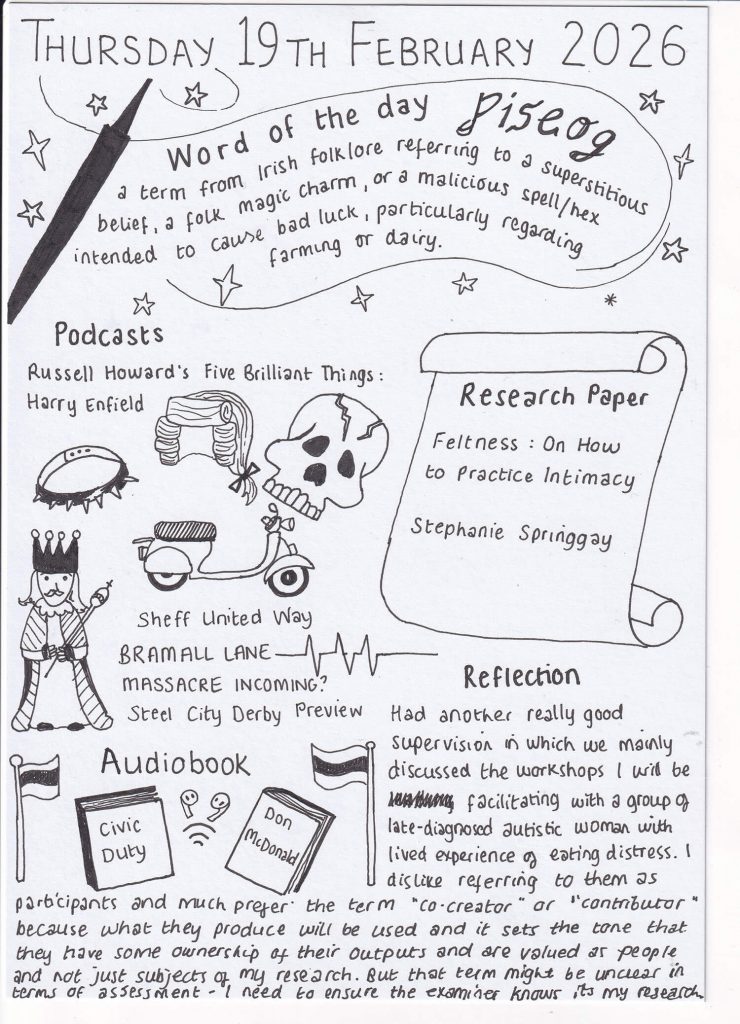 THURSDAY 19TH FEBRUARY 2026
Word of the day piseog
a term from Irish folklore referring to a superstitious
belief, a folk magic charm, or a malicious spell/hex
intended to cause bad luck, particularly regarding
farming or dairy.
Podcasts
Russell Howard's Five Brilliant Things:
Harry Enfield
Sheff United Way
BRAMALL LANE
MASSACRE INCOMING?
Steel City Derby Preview
Research Paper
Feltness: On How
to Practice Intimacy
Stephanie Springgay
Audiobook
Civic
Duty
Don
McDonald
Reflection
Had another really good
supervision in which we mainly
discussed the workshops I will be
facilitating with a group of
late-diagnosed autistic woman with
lived experience of eating distress. I
dislike referring to them as
participants and much prefer the term "co-creator" or "contributor"
because what they produce will be used and it sets the tone that
they have some ownership of their outputs and are valued as people
and not just subjects of my research. But that term might be unclear in
terms of assessment - I need to ensure the examiner knows its my research.